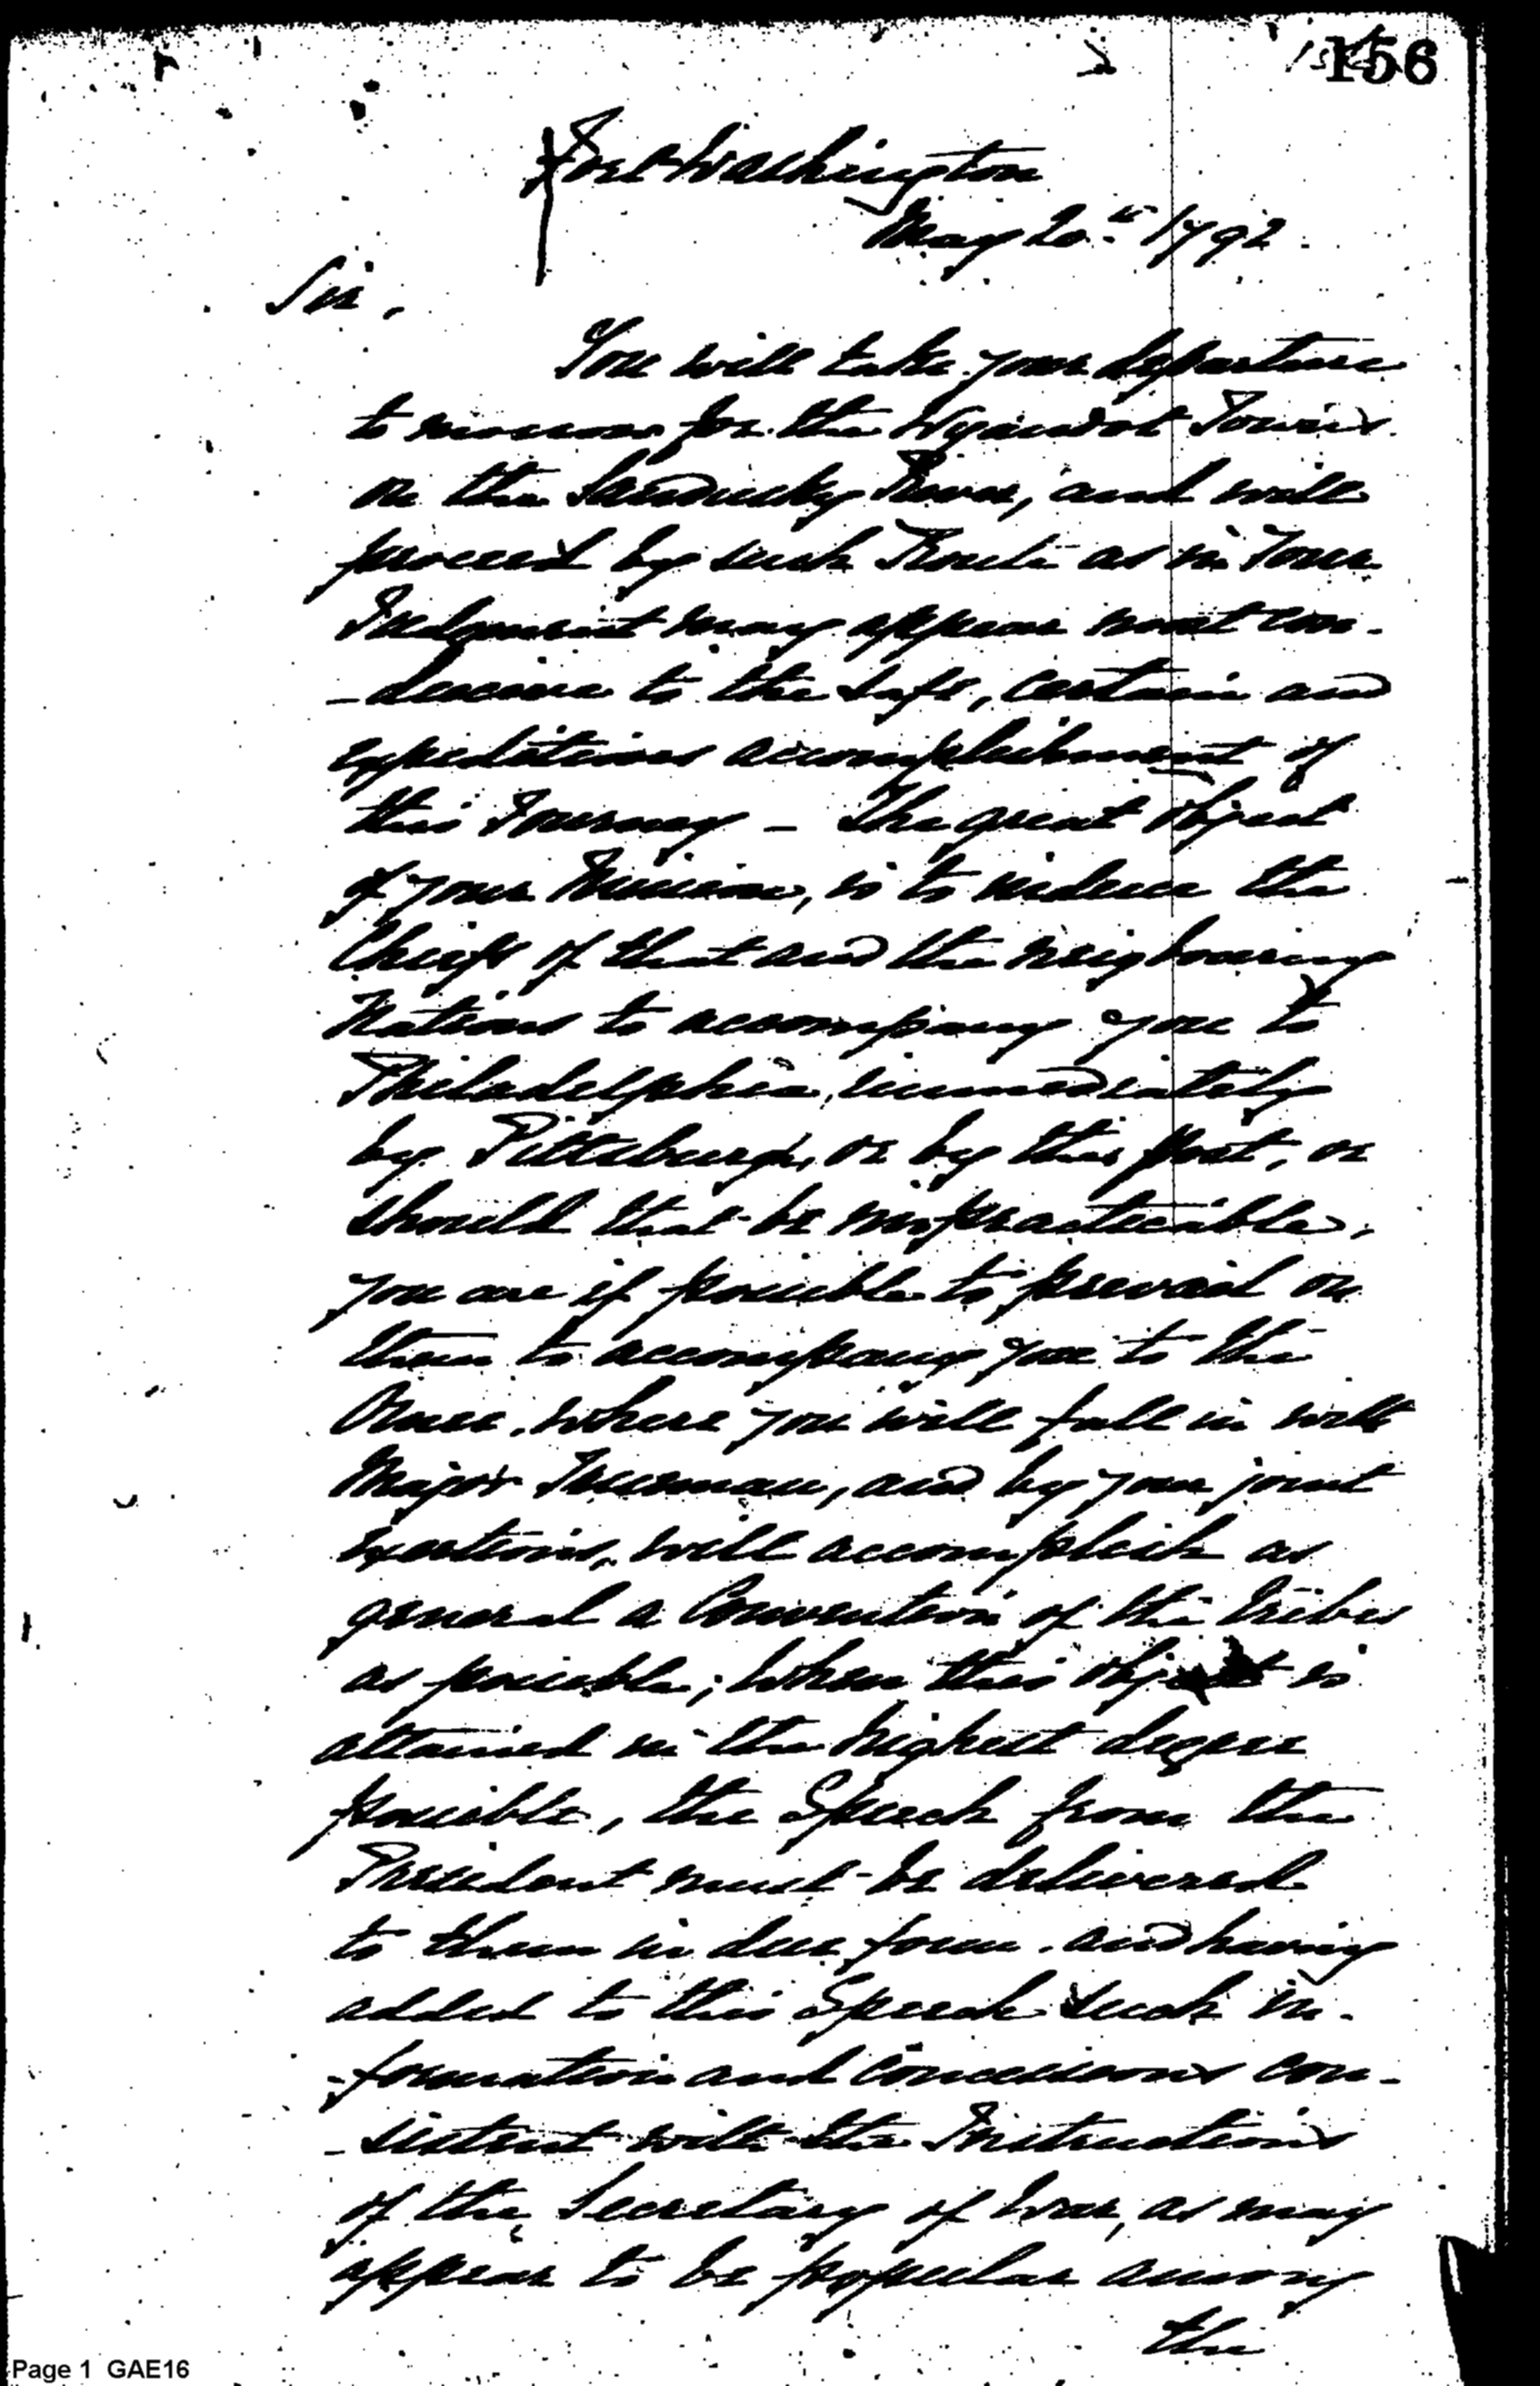 156
Fort Washington
May 20th 1792.
Sir,
You will take your departure
to morrow for the Wyandot Towns
on the Sandusky River, and will
proceed by such Route as in Your
Judgment may appear most con-
-ducive to the safe, certain and
expeditious accomplishment of
this Journey - The great object
of your Mission, is to induce the
Chiefs of that and the neighbouring
Nations to accompany you to
Philadelphia, immediately
by Pittsburgh, or by this post, or
should that be impracticable,
you are if possible to prevail on
them to accompany you to the
Omee, where you will fall in with
Major Trueman, and by your joint
exertions, will accomplish as
general a Convention of the tribes
as possible; when this object is
attained in the highest degree
possible, the Speech from the
President must be delivered
to them in due form. and having
added to this Speech such in-
-formation and concessions con-
-sistent with the Instructions
of the Secretary of War, as may
appear to be popular among
the
Page 1 GAE16